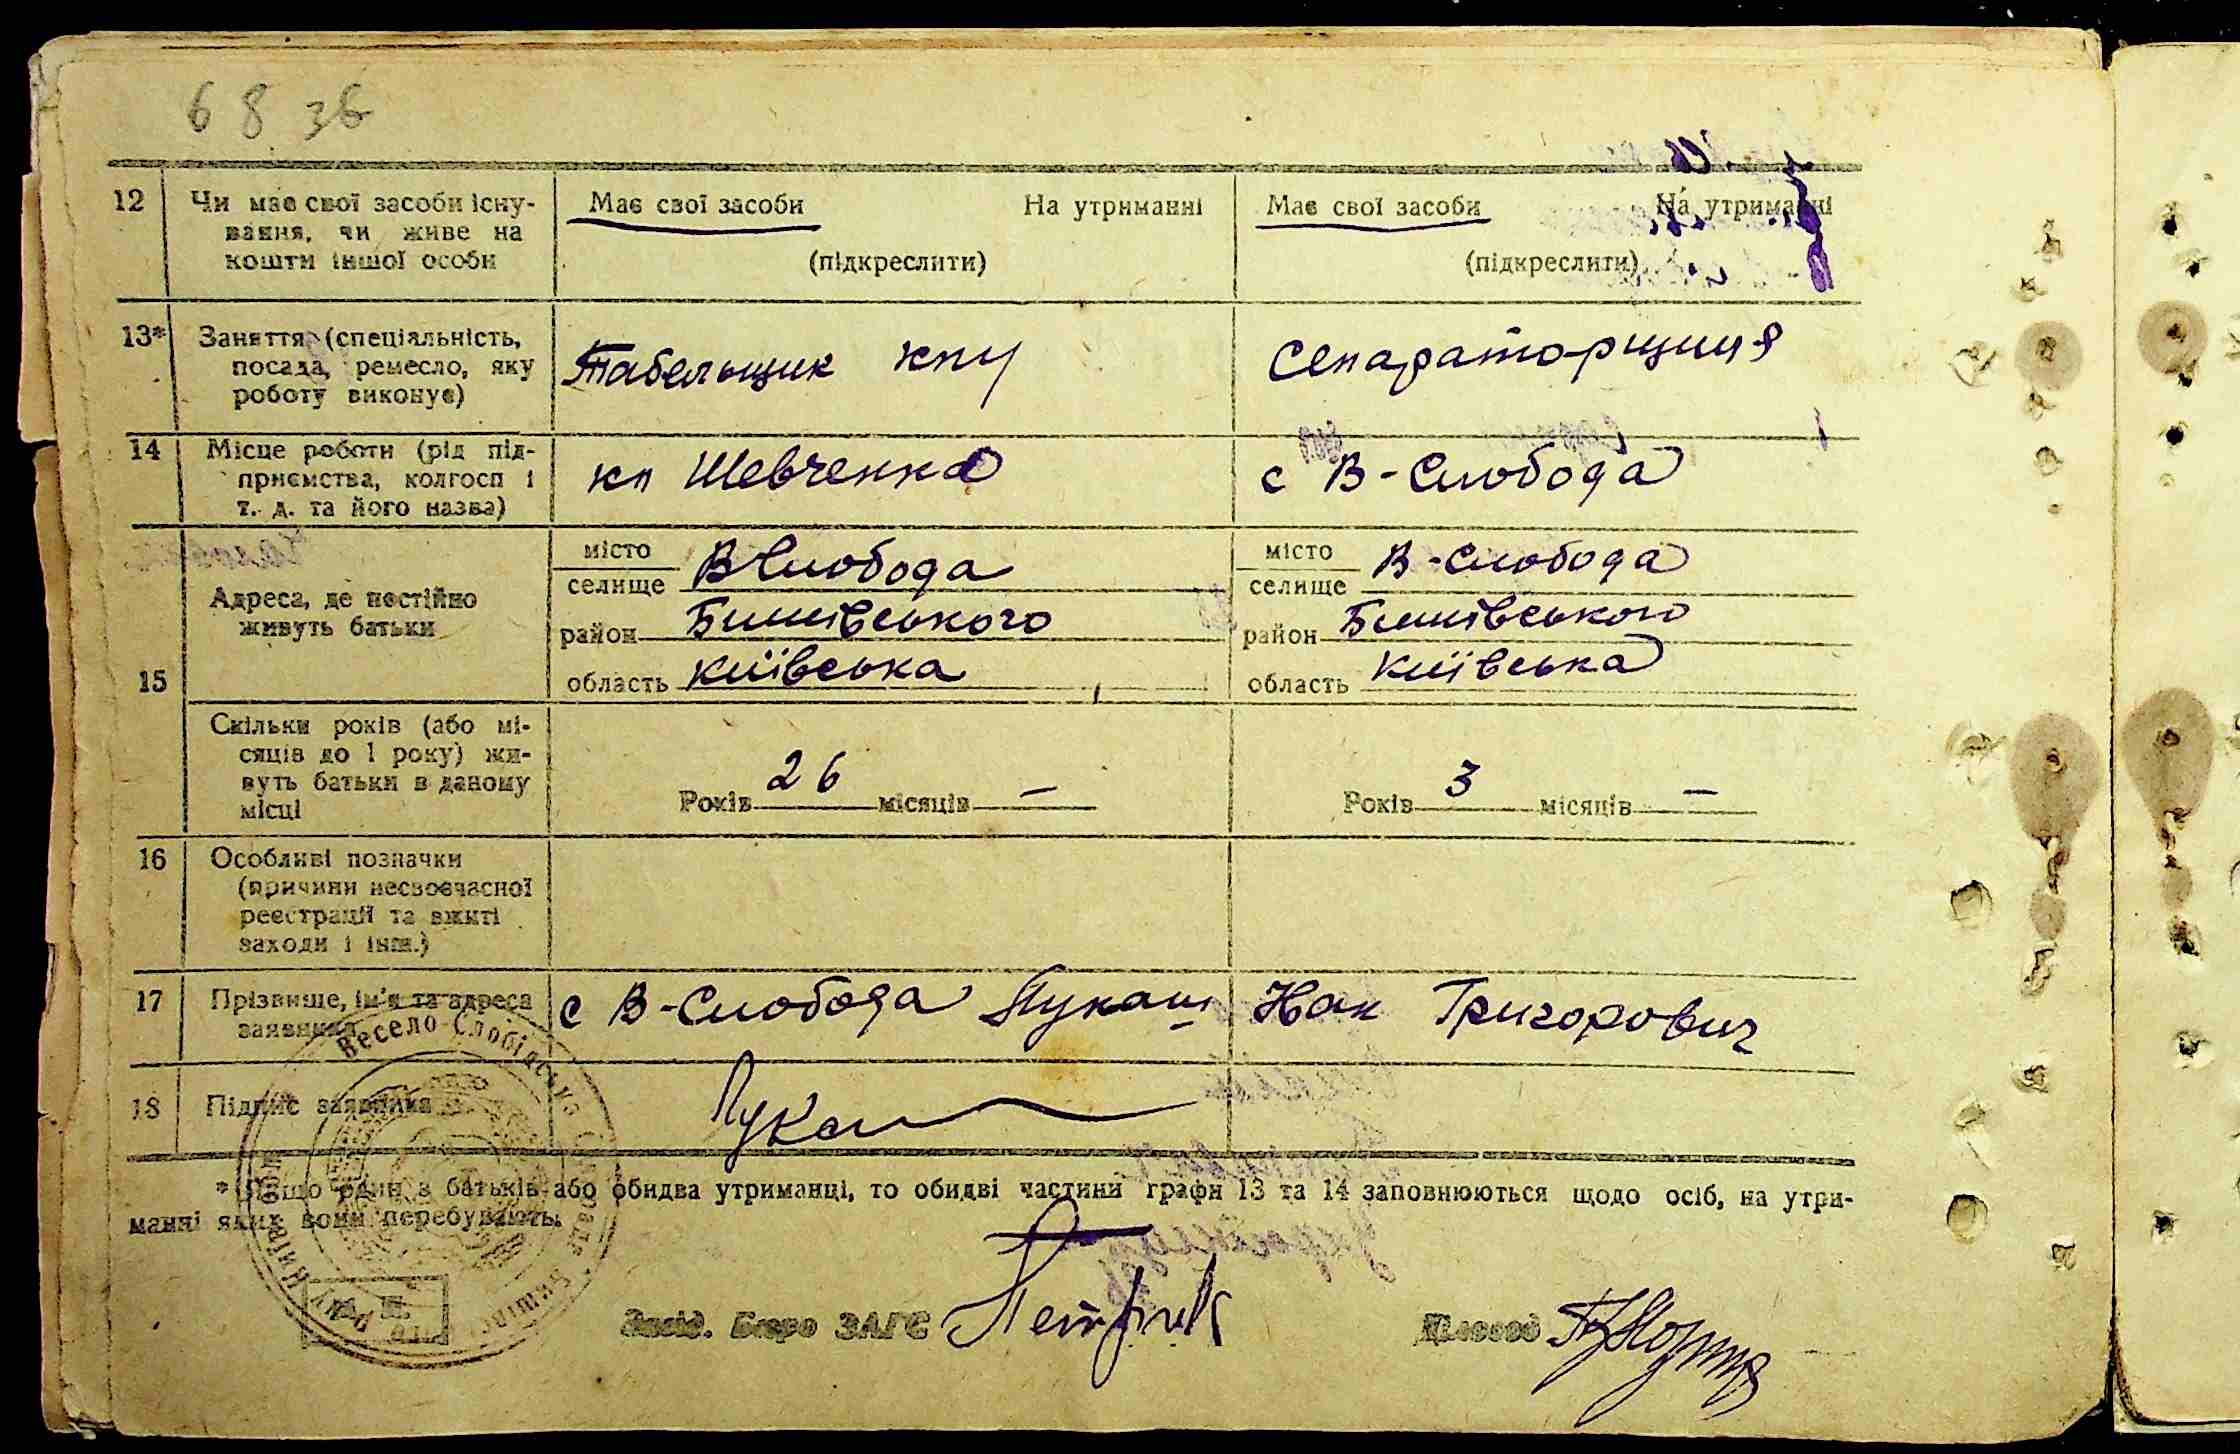 6 8 зб
12 Чи має свої засоби існу- Має свої засоби На утриманні Має свої засоби На утриманні
вання, чи живе на
кошти іншої особи (підкреслити) (підкреслити)
13* Заняття (спеціяльність,
посада, ремесло, яку Табельщик кпу Сепараторщиця
роботу виконує)
14 Місце роботи (рід під-
приємства, колгосп і кп Шевченка с В-Слобода
т. д. та його назва)
місто В Слобода місто В-Слобода
селище селище
Адреса, де постійно
живуть батьки район Бишівського район Бишівського
15 область Київська область Київська
Скільки років (або мі-
сяців до 1 року) жи-
вуть батьки в даному Років 26 місяців — Років 3 місяців —
місці
16 Особливі позначки
(причини несвоєчасної
реєстрації та вжиті
заходи і інш.)
17 Прізвище, ім'я та адреса с В-Слобода Лукаш Іван Григорович
заявника
Весело-Слобідська
18 Підпис заявника Лукаш
* Якщо один з батьків або обидва утриманці, то обидві частини графи 13 та 14 заповнюються щодо осіб, на утри-
манні яких вони перебувають.
Завід. Бюро ЗАГС Петрик Діловод